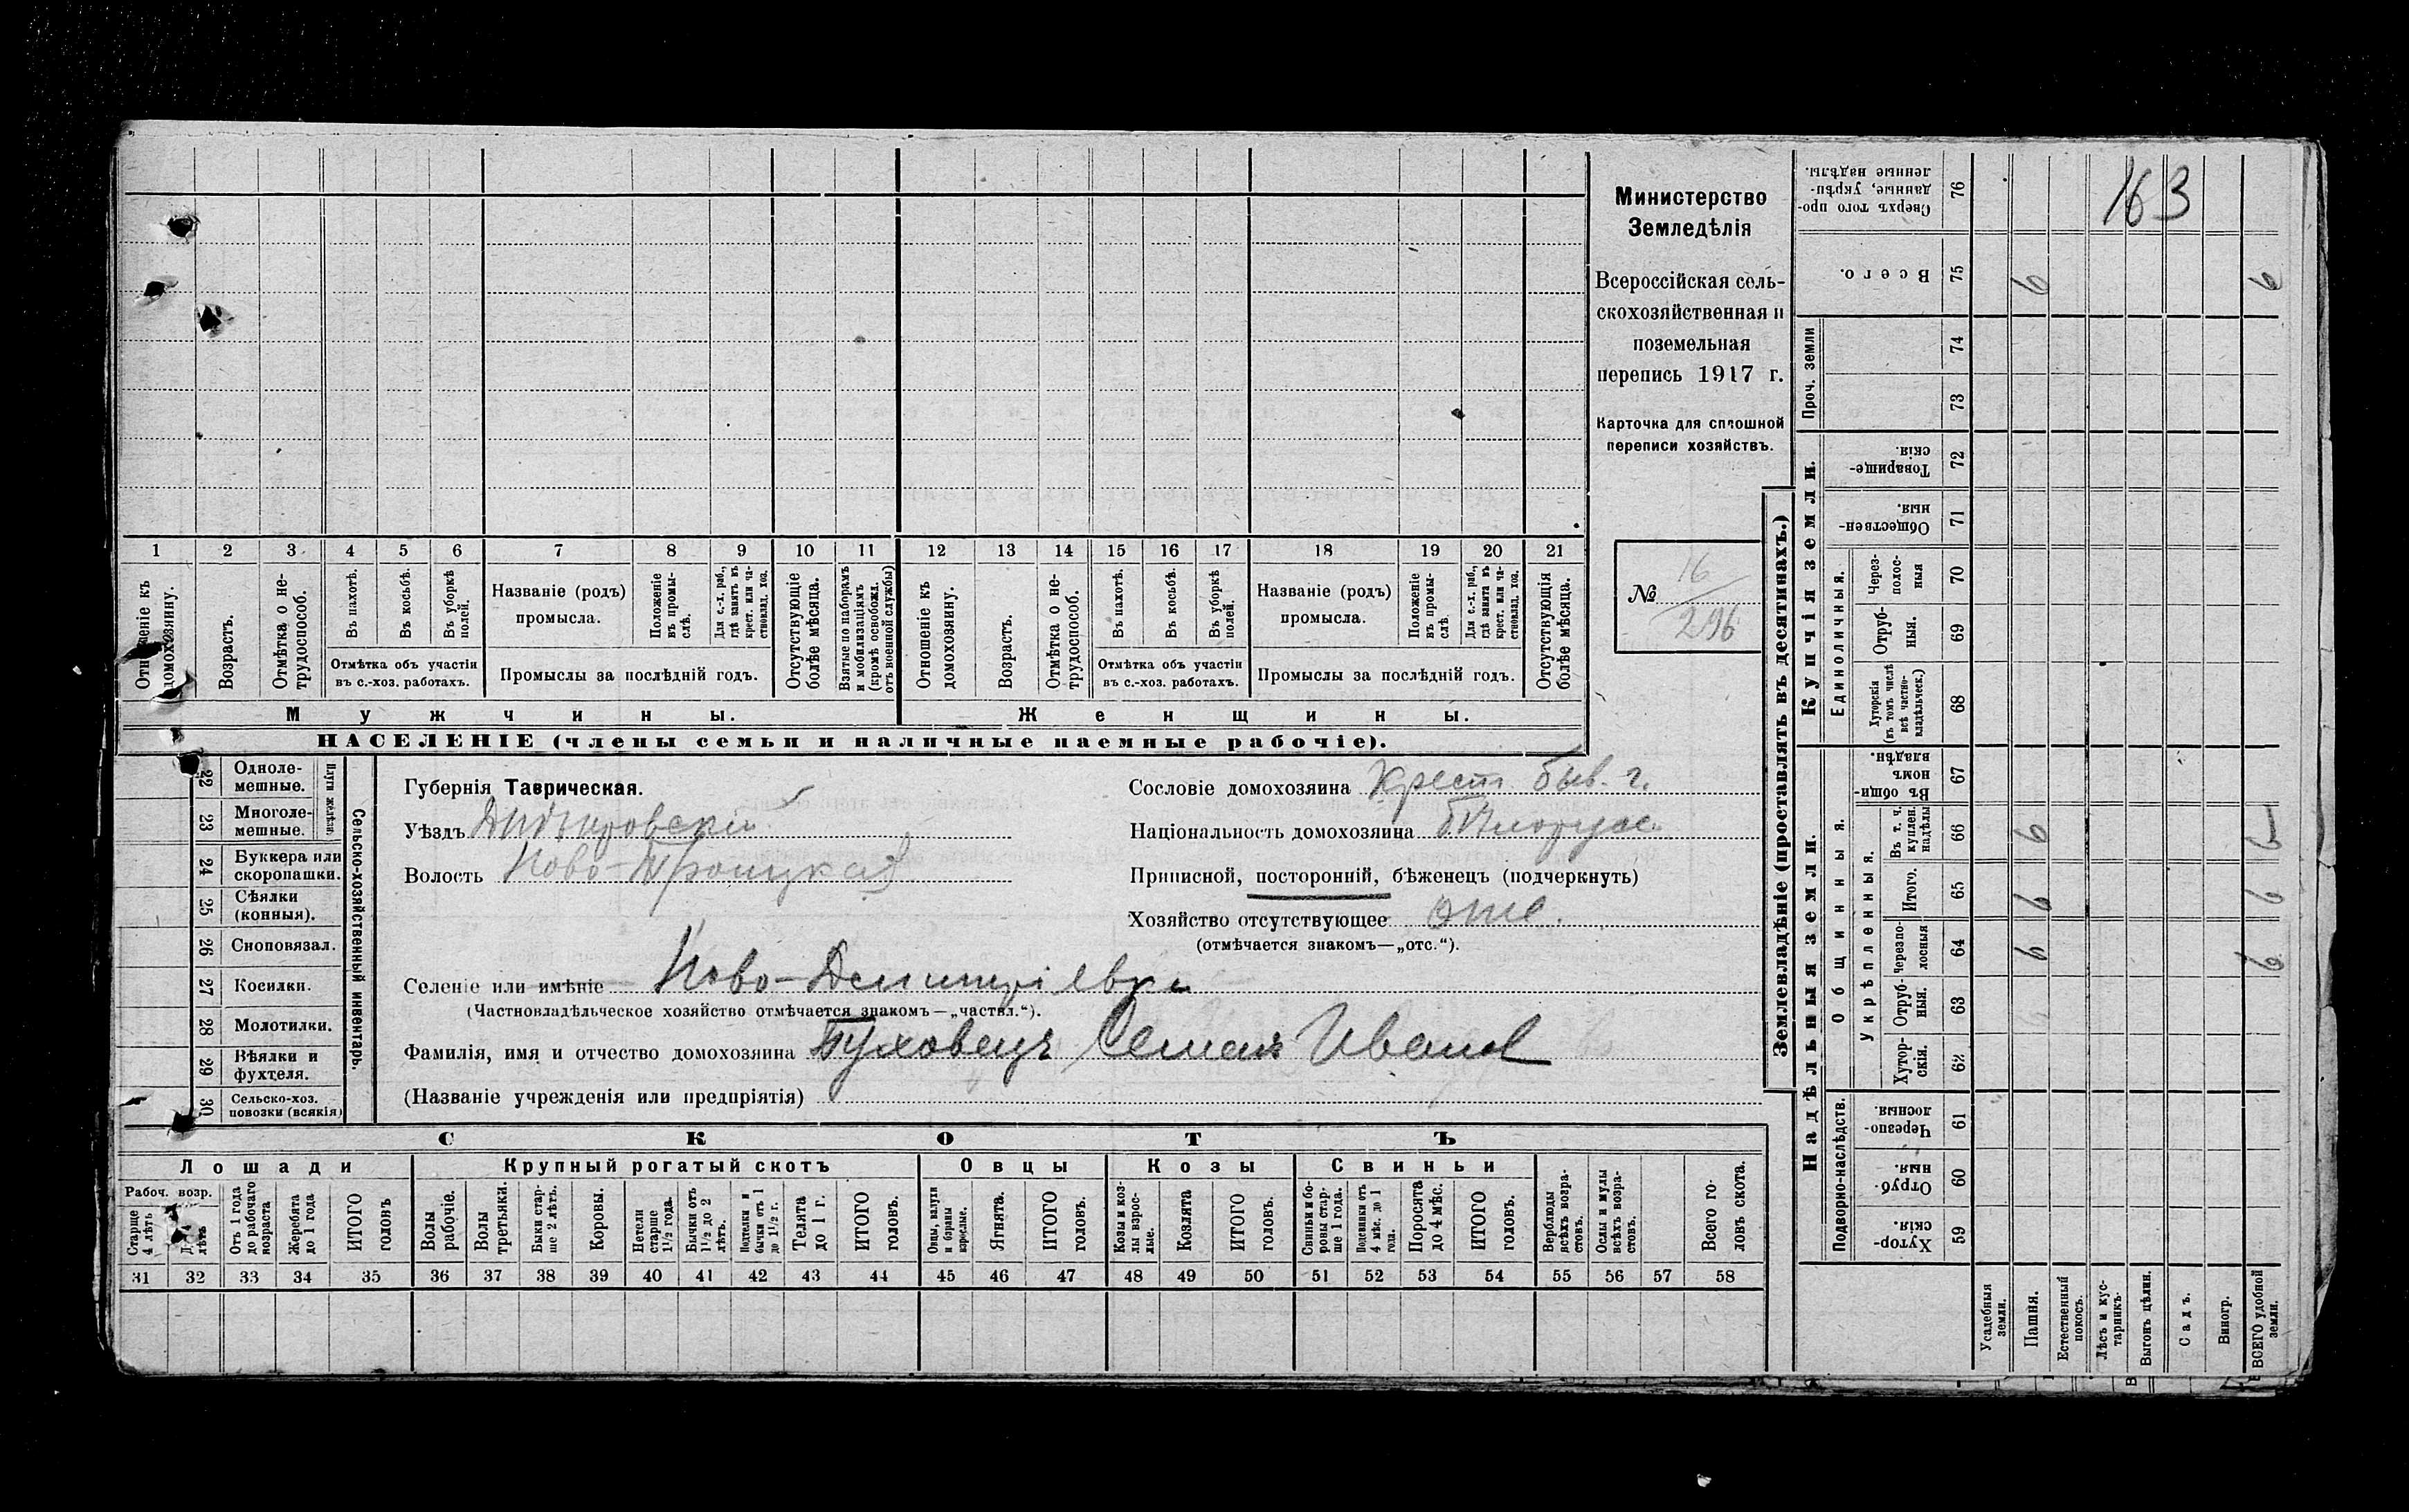 Министерство
Земледѣлія
Всероссійская сель-
скохозяйственная и
поземельная
перепись 1917 г.
Карточка для сплошной
переписи хозяйствъ.
№ 16
296
163
1 2 3 4 5 6 7 8 9 10 11 12 13 14 15 16 17 18 19 20 21
Отношеніе къ домохозяину.
Возрастъ.
Отмѣтка о не-трудоспособ.
Въ пахотѣ.
Въ косьбѣ.
Въ уборкѣ полей.
Отмѣтка объ участіи
въ с.-хоз. работахъ.
Названіе (родъ)
промысла.
Положеніе въ промы-слѣ.
Для с.-х. раб., гдѣ занятъ въ крест. или ча-стновлад. хоз.
Промыслы за послѣдній годъ.
Отсутствующіе болѣе мѣсяца.
Взятые по наборамъ и мобилизаціямъ (кромѣ освобожд. отъ военной службы)
Отношеніе къ домохозяину.
Возрастъ.
Отмѣтка о не-трудоспособ.
Въ пахотѣ.
Въ косьбѣ.
Въ уборкѣ полей.
Отмѣтка объ участіи
въ с.-хоз. работахъ.
Названіе (родъ)
промысла.
Положеніе въ промы-слѣ.
Для с.-х. раб., гдѣ занята въ крест. или ча-стновлад. хоз.
Промыслы за послѣдній годъ.
Отсутствующія болѣе мѣсяца.
Мужчины.
Женщины.
НАСЕЛЕНІЕ (члены семьи и наличные наемные рабочіе).
22 Одноле-мешные.
23 Многоле-мешные.
Плуги желѣзн.
24 Буккера или скоропашки.
25 Сѣялки (конныя).
26 Сноповязал.
27 Косилки.
28 Молотилки.
29 Вѣялки и фухтеля.
30 Сельско-хоз. повозки (всякія)
Сельско-хозяйственный инвентарь.
Губернія Таврическая.
Уѣздъ Днѣпровскій
Волость Ново-Троицкая
Сословіе домохозяина Крест. быв. г.
Національность домохозяина бѣлорус.
Приписной, посторонній, бѣженецъ (подчеркнуть)
Хозяйство отсутствующее отс.
(отмѣчается знакомъ—„отс.“).
Селеніе или имѣніе Ново-Дмитріевка
(Частновладѣльческое хозяйство отмѣчается знакомъ—„частвл.“).
Фамилія, имя и отчество домохозяина Буховецъ Семенъ Иванов
(Названіе учрежденія или предпріятія)
СКОТЪ
Лошади
Крупный рогатый скотъ
Овцы
Козы
Свиньи
Рабоч. возр.
Старше 4 лѣтъ
лѣтъ
Отъ 1 года до рабочаго возраста
Жеребята до 1 года
ИТОГО головъ
Волы рабочіе.
Волы третьяки.
Быки стар-ше 2 лѣтъ.
Коровы.
Нетели старше 1½ года.
Бычки отъ 1½ до 2 лѣтъ.
Подтелки и бычки отъ 1 до 1½ г.
Телята до 1 г.
ИТОГО головъ.
Овцы, валухи и бараны взрослые.
Ягнята.
ИТОГО головъ.
Козы и коз-лы взрос-лые.
Козлята
ИТОГО головъ.
Свиньи и бо-ровы стар-ше 1 года.
Подсвинки отъ 4 мѣс. до 1 года.
Поросята до 4 мѣс.
ИТОГО головъ.
Верблюды всѣхъ возра-стовъ.
Ослы и мулы всѣхъ возра-стовъ.
Всего го-ловъ скота.
31 32 33 34 35 36 37 38 39 40 41 42 43 44 45 46 47 48 49 50 51 52 53 54 55 56 57 58
Землевладѣніе (проставлять въ десятинахъ.)
Надѣльныя земли.
Купчія земли.
Проч. земли
Сверхъ того про-данные, укрѣп-ленные надѣлы. 76
Всего. 75 9 9
74
73
Товарище-скія. 72
Обществен-ныя. 71
Единоличныя.
Через-полос-ныя 70
Отруб-ныя. 69
Хуторскія (въ томъ числѣ всѣ частно-владѣльческ.) 68
Въ общи-номъ владѣн. 67
Общинныя.
Укрѣпленныя.
Въ т. ч. куплен. надѣлы 66 9
Итого. 65 9 9
Черезпо-лосныя 64 9 9
Отруб-ныя. 63
Хутор-скія. 62
Подворно-наслѣдств.
Черезпо-лосныя. 61
Отруб-ныя. 60
Хутор-скія. 59
Усадебныя земли.
Пашня.
Естественный покосъ.
Лѣсъ и кус-тарникъ.
Выгонъ цѣлин.
Садъ.
Виногр.
ВСЕГО удобной земли.